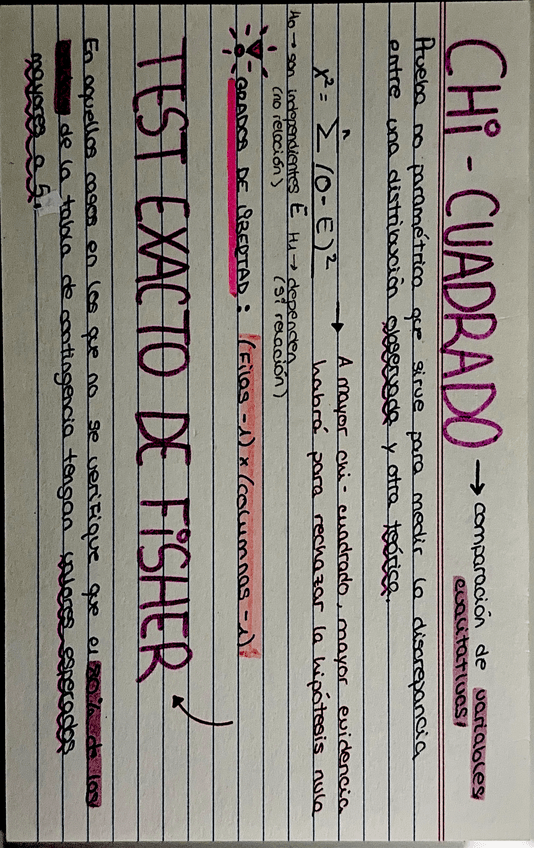 CHI-CUADRADO → comparación de variables
cualitativas
Prueba no paramétrica que sirve para medir la discrepancia
entre una distribución observada y otra teórica.
x² = Σ (O - E)² → A mayor chi-cuadrado, mayor evidencia
n
E
habrá para rechazar la hipótesis nula
H₀ → son independientes H₁ → dependen
(no relación) (sí relación)
GRADOS DE LIBERTAD: (Filas -1) x (columnas -1)
TEST EXACTO DE FISHER
En aquellos casos en los que no se verifique que el 80% de las
de la tabla de contingencia tengan valores esperados
mayores a 5.